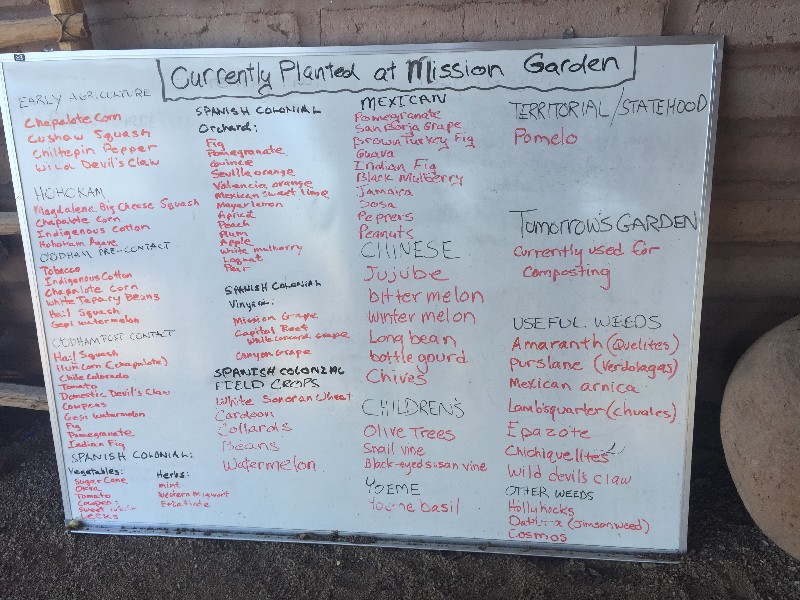 Currently Planted at Mission Garden
EARLY AGRICULTURE
Chapalote Corn
Cushaw Squash
Chiltepin Pepper
Wild Devil's Claw
HOHOKAM
Magdalena Big Cheese Squash
Chapalote Corn
Indigenous Cotton
Hohokam Agave
OODHAM PRE-CONTACT
Tobacco
Indigenous Cotton
Chapalote Corn
White Tepary Beans
Ha:l Squash
Gepi Watermelon
OODHAM POST CONTACT
Ha:l Squash
Huñ Corn (Chapalote)
Chile Colorado
Tomato
Domestic Devil's Claw
Cowpeas
Gepi Watermelon
Fig
Pomegranate
Indian Fig
SPANISH COLONIAL:
Vegetables:
Sugar Cane
Okra
Tomato
Cowpeas
Sweet
Leeks
Herbs:
Mint
Western Mugwort
Estafiate
SPANISH COLONIAL
Orchard:
Fig
Pomegranate
Quince
Seville orange
Valencia orange
Mexican sweet lime
Meyer lemon
Apricot
Peach
Plum
Apple
White mulberry
Loquat
Pear
SPANISH COLONIAL
Vinyard:
Mission Grape
Capital Reef
White Concord grape
Canyon Grape
SPANISH COLONIAL
FIELD CROPS
White Sonoran Wheat
Cardoon
Collards
Beans
Watermelon
MEXICAN
Pomegranate
San Borja Grape
Brown Turkey Fig
Guava
Indian Fig
Black Mulberry
Jamaica
Sosa
Peppers
Peanuts
CHINESE
Jujube
bitter melon
winter melon
Long bean
bottle gourd
Chives
CHILDREN'S
Olive Trees
Snail vine
Black-eyed susan vine
YOEME
Yoeme basil
TERRITORIAL/STATEHOOD
Pomelo
TOMORROW'S GARDEN
Currently used for
composting
USEFUL WEEDS
Amaranth (Quelites)
Purslane (Verdolagas)
Mexican arnica
Lamb'squarter (chuales)
Epazote
Chichiquelites
Wild devil's claw
OTHER WEEDS
Hollyhocks
Datura (Jimsonweed)
Cosmos